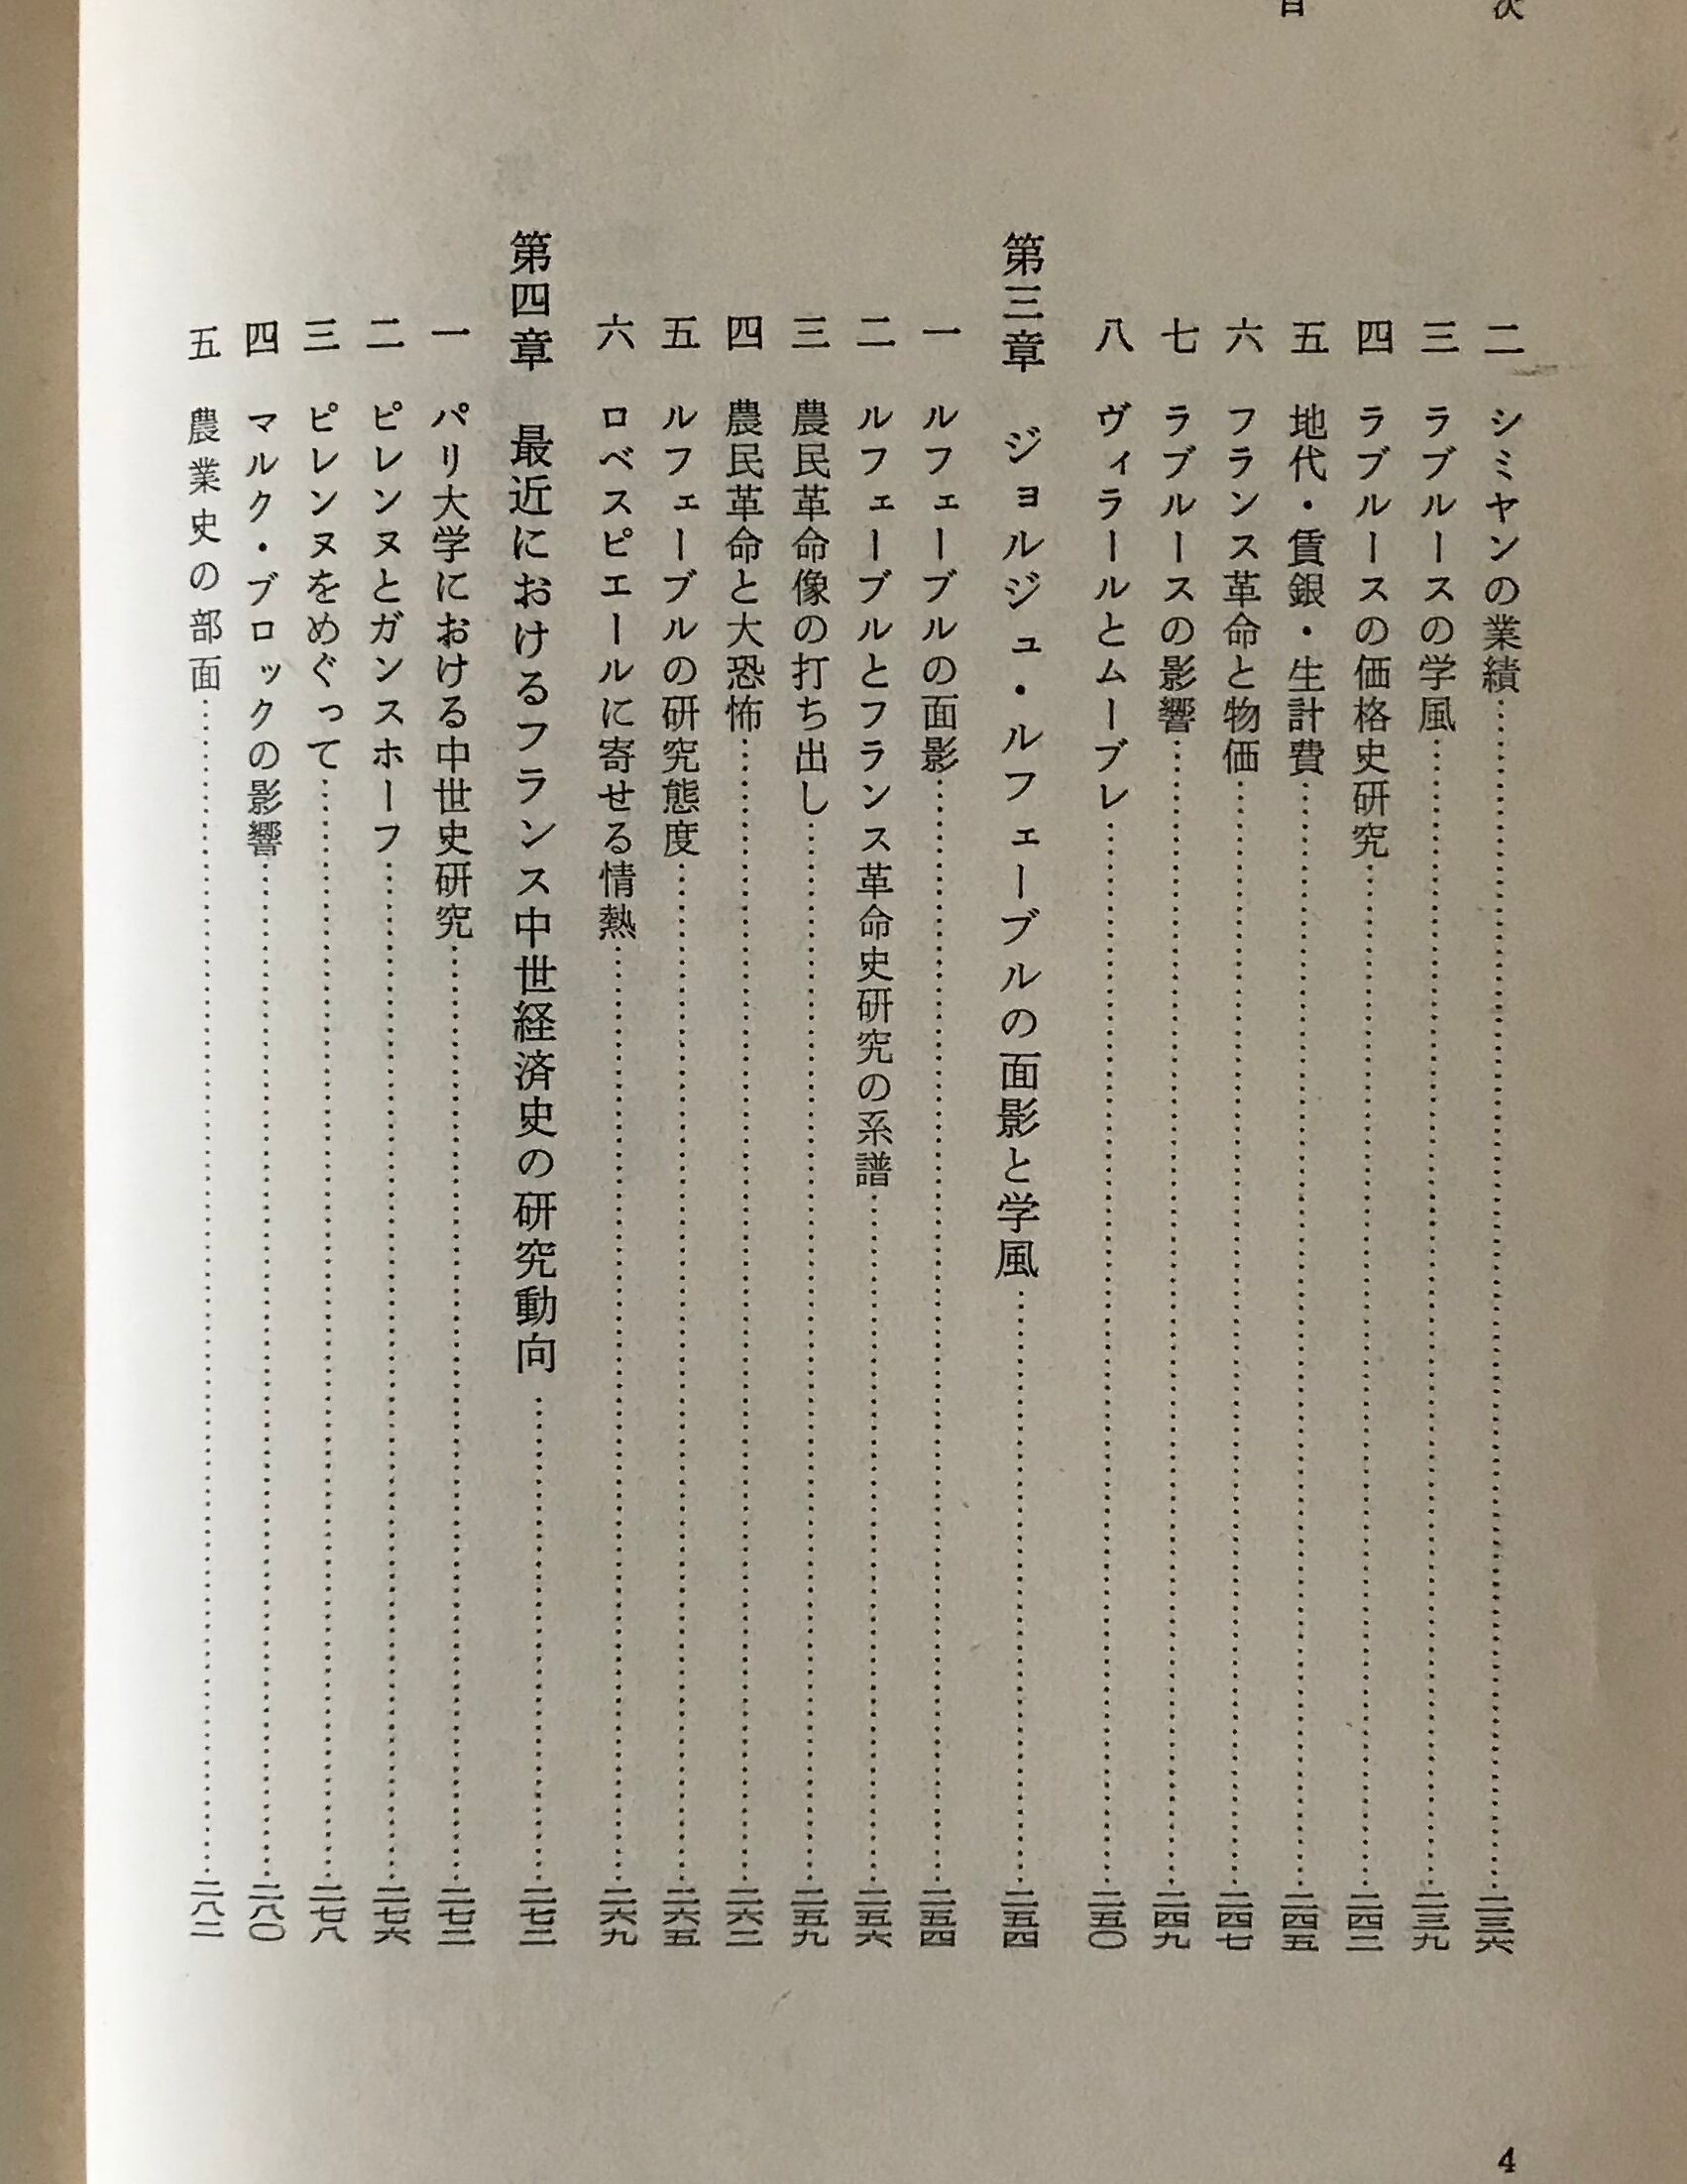 目次
二 シミヤンの業績……二三六
三 ラブルースの学風……二三九
四 ラブルースの価格史研究……二四二
五 地代・賃銀・生計費……二四五
六 フランス革命と物価……二四七
七 ラブルースの影響……二四九
八 ヴィラールとムーブレ……二五〇
第三章 ジョルジュ・ルフェーブルの面影と学風……二五四
一 ルフェーブルの面影……二五四
二 ルフェーブルとフランス革命史研究の系譜……二五六
三 農民革命像の打ち出し……二五九
四 農民革命と大恐怖……二六二
五 ルフェーブルの研究態度……二六五
六 ロベスピエールに寄せる情熱……二六九
第四章 最近におけるフランス中世経済史の研究動向……二七三
一 パリ大学における中世史研究……二七三
二 ピレンヌとガンスホーフ……二七六
三 ピレンヌをめぐって……二七八
四 マルク・ブロックの影響……二八〇
五 農業史の部面……二八二
4